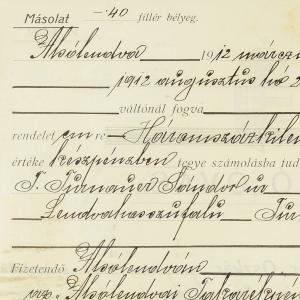 Másolat —·40 fillér bélyeg.
Alsólendva 1912 március
1912 augusztus hó 2
váltónál fogva
rendelet em re Háromszázkilen
értéke készpénzben tegye számolásba tud
T. Turnauer Sándor úr
Lendvahosszufalu Tur
Fizetendő Alsólendván
az Alsólendvai Takarékpén